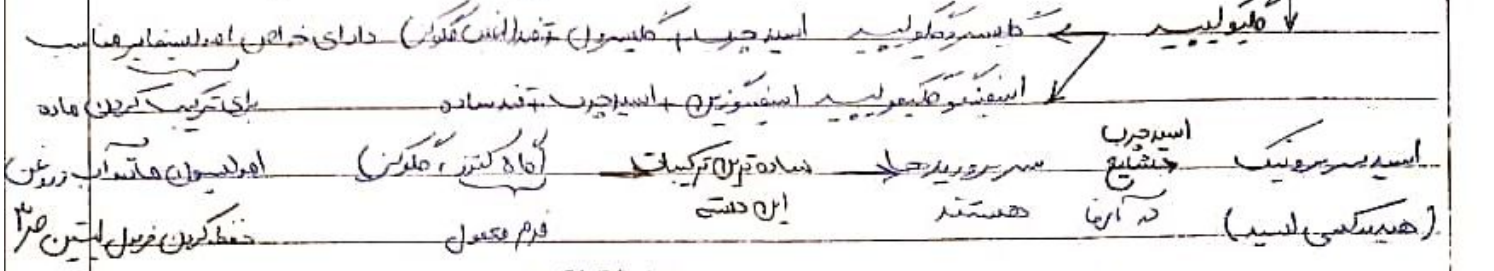 گلیکولیپید گلیسروگلیکولیپید اسید چرب + گلیسرول + قند (الفت گلوکز) دارای خواص امولسیفایر مناسب
اسفنگوگلیکولیپید اسفنگوزین + اسید چرب + قند ساده برای ترکیب کردن ماده
اسید سربرونیک اسید چرب حشایع سربروزیدها ساده ترین ترکیبات (گالاکتوز، گلوکز) امولسیون مانند آب و روغن
(هیدروکسی اسید) در آنها هستند این دسته فرم معمول حفظ کردن فرمول لستین ص ۳